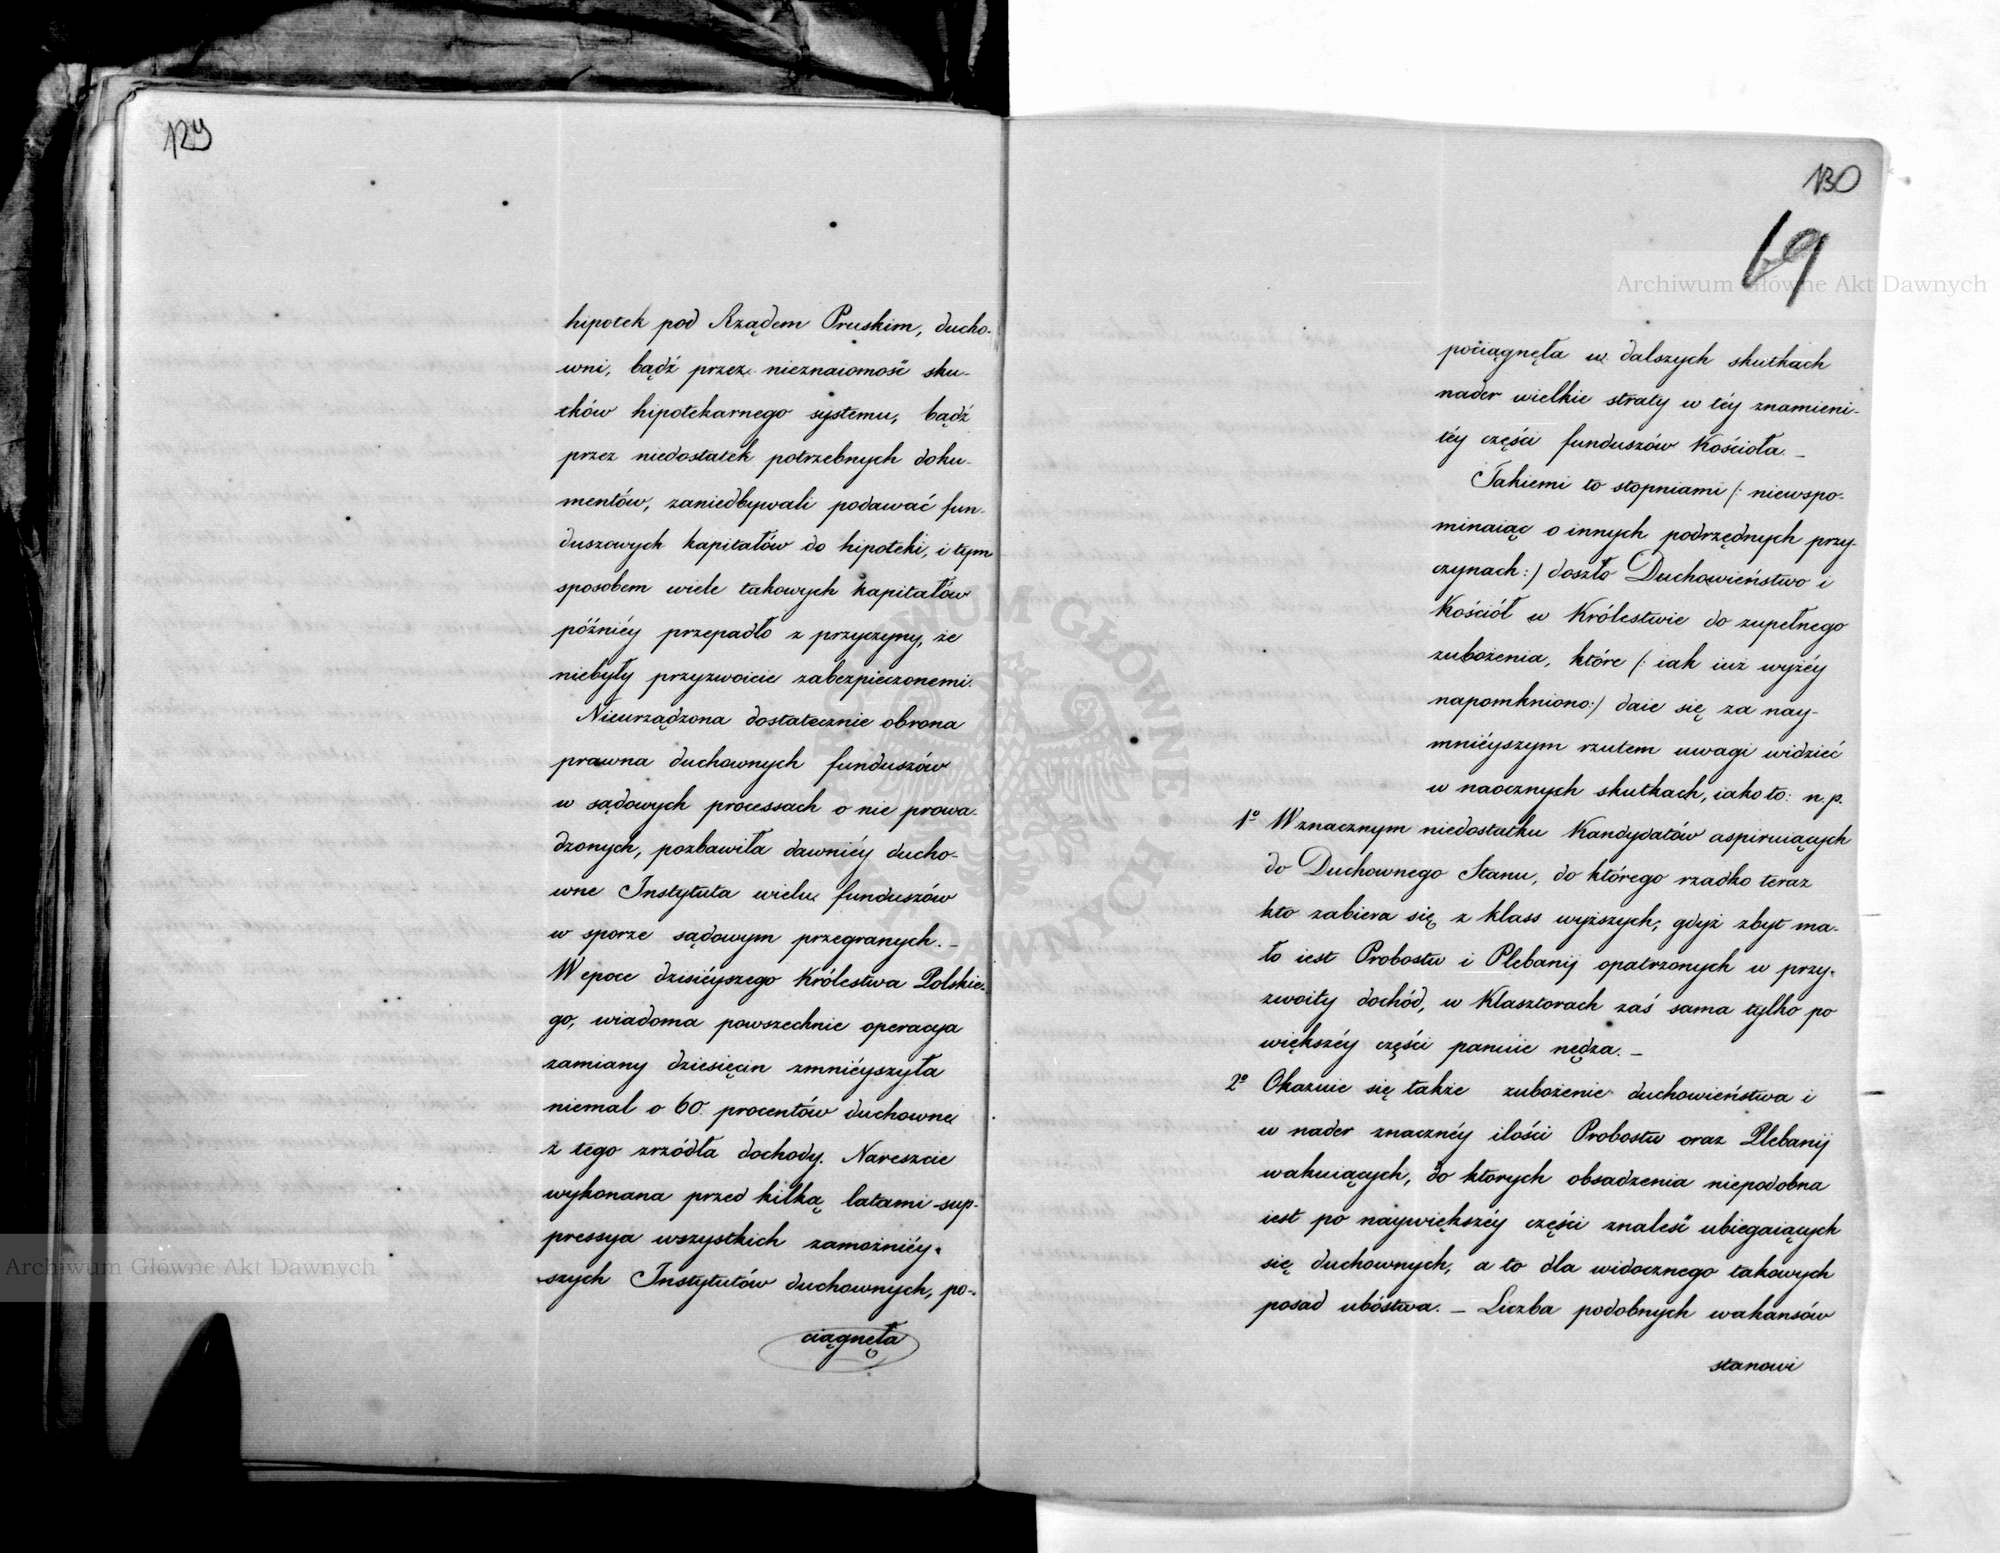 129
hipotek pod Rządem Pruskim, ducho-
wni, bądź przez nieznaiomość sku-
tków hipotekarnego systemu, bądź
przez niedostatek potrzebnych doku-
mentów, zaniedbywali podawać fun-
duszowych kapitałów do hipoteki, i tym
sposobem wiele takowych kapitałów
późniéy przepadło z przyczyny, że
niebyły przyzwoicie zabezpieczonemi.
Nieurządzona dostatecznie obrona
prawna duchownych funduszów
w sądowych processach o nie prowa-
dzonych, pozbawiła dawniéy ducho-
wne Instytuta wielu funduszów
w sporze sądowym przegranych. –
W epoce dzisiéyszego Królestwa Polskie-
go, wiadoma powszechnie operacya
zamiany dziesięcin zmniéyszyła
niemal o 60. procentów duchowne
z tego zrzódła dochody. Nareszcie
wykonana przed kilką latami sup-
pressya wszystkich zamożniéy-
szych Instytutów duchownych, po-
ciągnęła
130
69
pociągnęła w dalszych skutkach
nader wielkie straty w téy znamieni-
téy części funduszów Kościoła. –
Takiemi to stopniami /: niewspo-
minaiąc o innych podrzędnych przy-
czynach :/ doszło Duchowieństwo i
Kościół w Królestwie do zupełnego
zubożenia, które /: iak iuż wyżéy
napomkniono :/ daie się za nay-
mniéyszym rzutem uwagi widzieć
w naocznych skutkach, iako to: n. p.
1º W znacznym niedostatku Kandydatów aspiruiących
do Duchownego Stanu, do którego rzadko teraz
kto zabiera się z klass wyższych, gdyż zbyt ma-
ło iest Probostw i Plebanij opatrzonych w przy-
zwoity dochód, w Klasztorach zaś sama tylko po
większéy części panuie nędza. –
2º Okazuie się także zubożenie duchowieństwa i
w nader znacznéy ilości Probostw oraz Plebanij
wakuiących, do ktorych obsadzenia niepodobna
iest po naywiększéy części znaleść ubiegaiących
się duchownych, a to dla widocznego takowych
posad ubóstwa. – Liczba podobnych wakansów
stanowi
Archiwum Główne Akt Dawnych
Archiwum Główne Akt Dawnych
ARCHIWUM GŁÓWNE AKT DAWNYCH